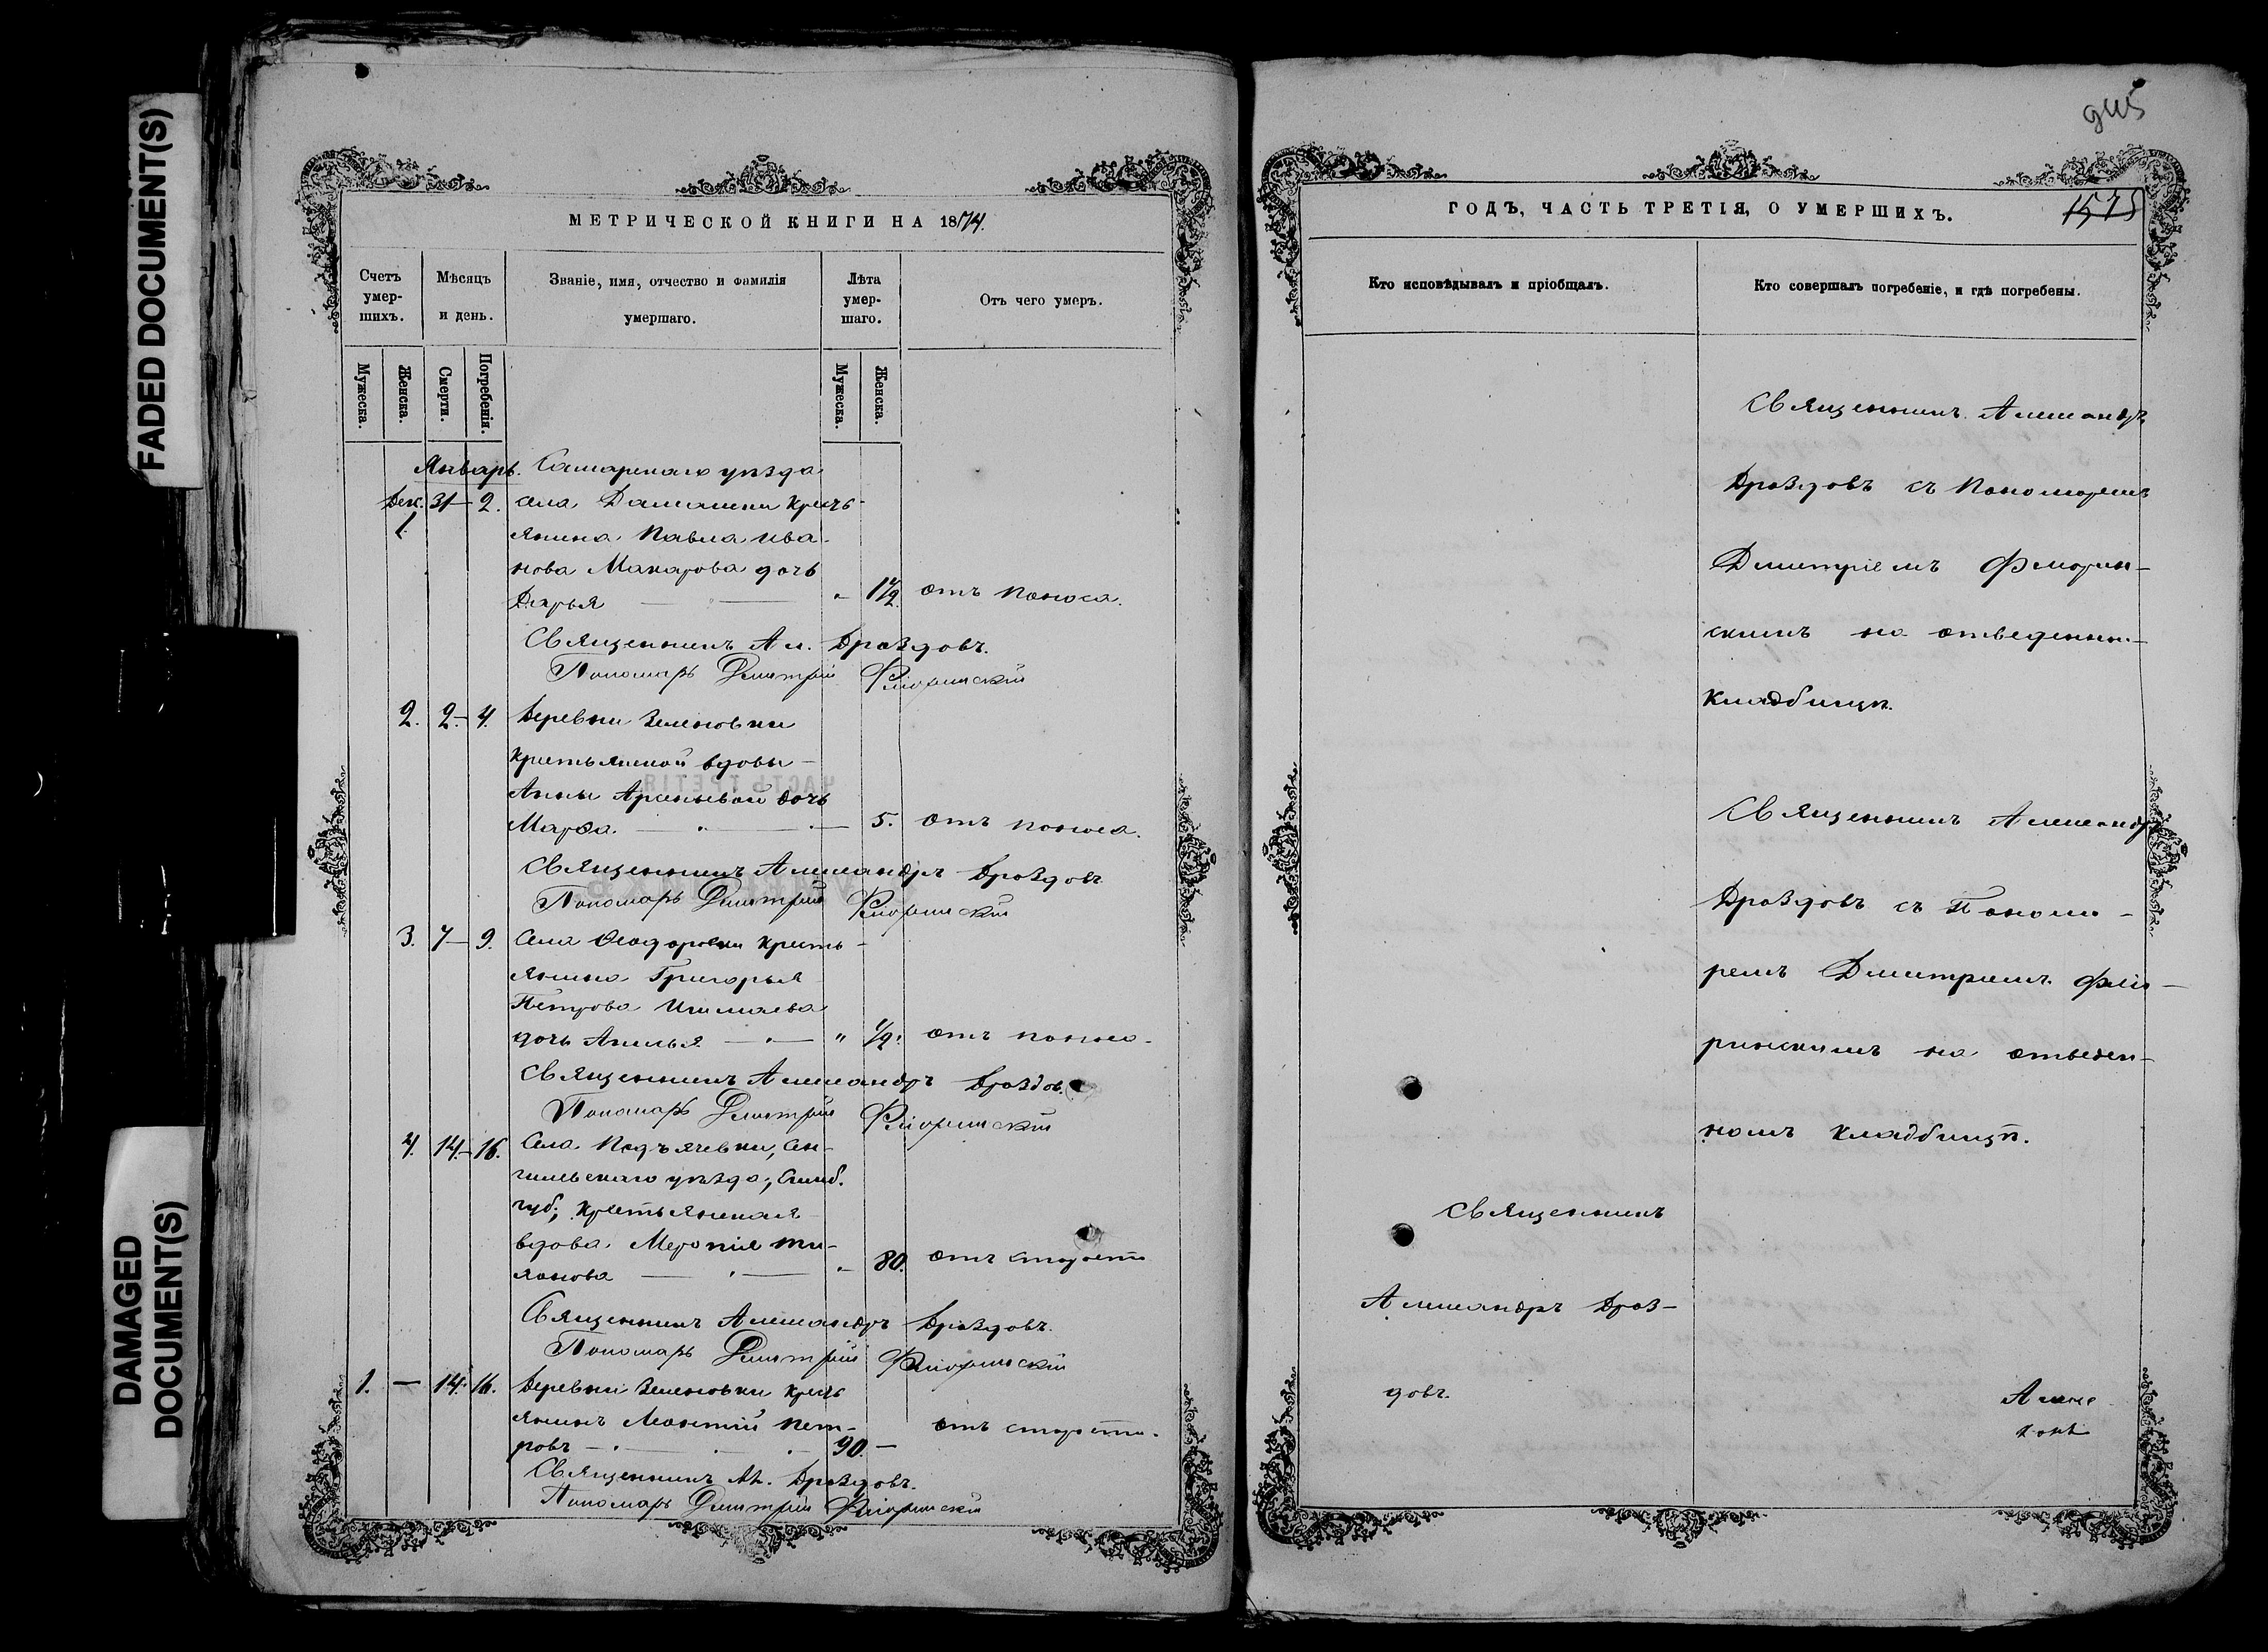 FADED DOCUMENT(S)
DAMAGED
DOCUMENT(S)
МЕТРИЧЕСКОЙ КНИГИ НА 1874.
Счетъ
умер-
шихъ.
Мѣсяцъ
и день.
Званіе, имя, отчество и фамилія
умершаго.
Лѣта
умер-
шаго.
Отъ чего умеръ.
Мужеска.
Женска.
Смерти.
Погребенія.
Мужеска.
Женска.
Январь. Самарскаго уѣзда
Дек. 31 — 2. села Домашки кресть-
1. янина Павла Ива-
нова Макарова дочь
Дарья — " — " 1 1/2. отъ поноса.
Священникъ Ал. Дроздовъ.
Пономарь Дмитрій Флоринскій
2. 2 — 4. Деревни Зеленовки
крестьянской вдовы
Анны Арсеньевой дочь
Марѳа. — " — 5. отъ поноса.
Священникъ Александръ Дроздовъ
Пономарь Дмитрій Флоринскій
3. 7 — 9. Села Ѳеодоровки кресть-
янина Григорья
Петрова
дочь — " — " 1/2. отъ поноса.
Священникъ Александръ Дроздов.
Пономарь Дмитрій Флоринскій
4. 14. — 16. Села Подъячевки, Сен-
гилевскаго уѣзда, Симб.
губ; крестьянская
вдова
80. отъ старости
Священникъ Александръ Дроздовъ.
Пономарь Дмитрій Флоринскій
1. — 14. 16. Деревни Зеленовки кресть
янинъ Пет-
ровъ — 90. — отъ старости.
Священникъ Ал. Дроздовъ.
Пономарь Дмитрій Флоринскій
945
ГОДЪ, ЧАСТЬ ТРЕТІЯ, О УМЕРШИХЪ.
1575
Кто исповѣдывалъ и пріобщалъ.
Кто совершалъ погребеніе, и гдѣ погребены.
Священникъ Александръ
Дроздовъ съ Пономаремъ
Дмитріемъ Флорин-
скимъ на отведенномъ
кладбищѣ.
Священникъ Александръ
Дроздовъ съ Понома-
ремъ Дмитріемъ Фло-
ринскимъ на отведен-
номъ кладбищѣ.
Священникъ
Александръ Дроз-
довъ.